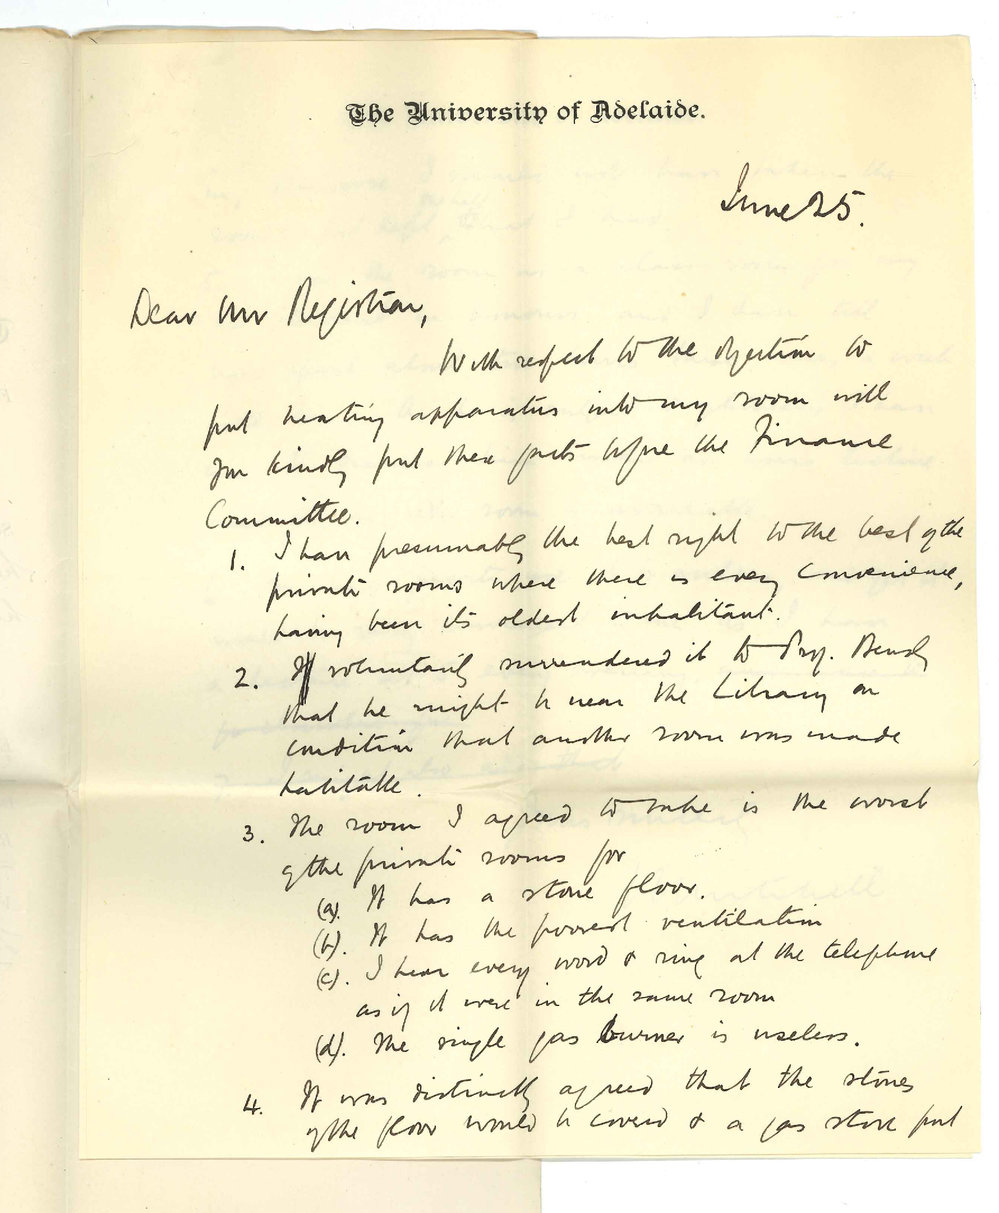 The University of Adelaide.
June 25.
Dear Mr Registrar,
With respect to the objection to
put heating apparatus into my room will
you kindly put these facts before the Finance
Committee.
1. I have presumably the best right to the best of the
private rooms where there is every convenience,
having been its oldest inhabitant.
2. I voluntarily surrendered it to Prof. Hendy
that he might be near the Library on
condition that another room was made
habitable.
3. The room I agreed to take is the worst
of the private rooms for
(a). It has a stone floor.
(b). It has the poorest ventilation
(c). I hear every word & ring at the telephone
as if it were in the same room
(d). The single gas burner is useless.
4. It was distinctly agreed that the stones
of the floor would be covered & a gas stove put